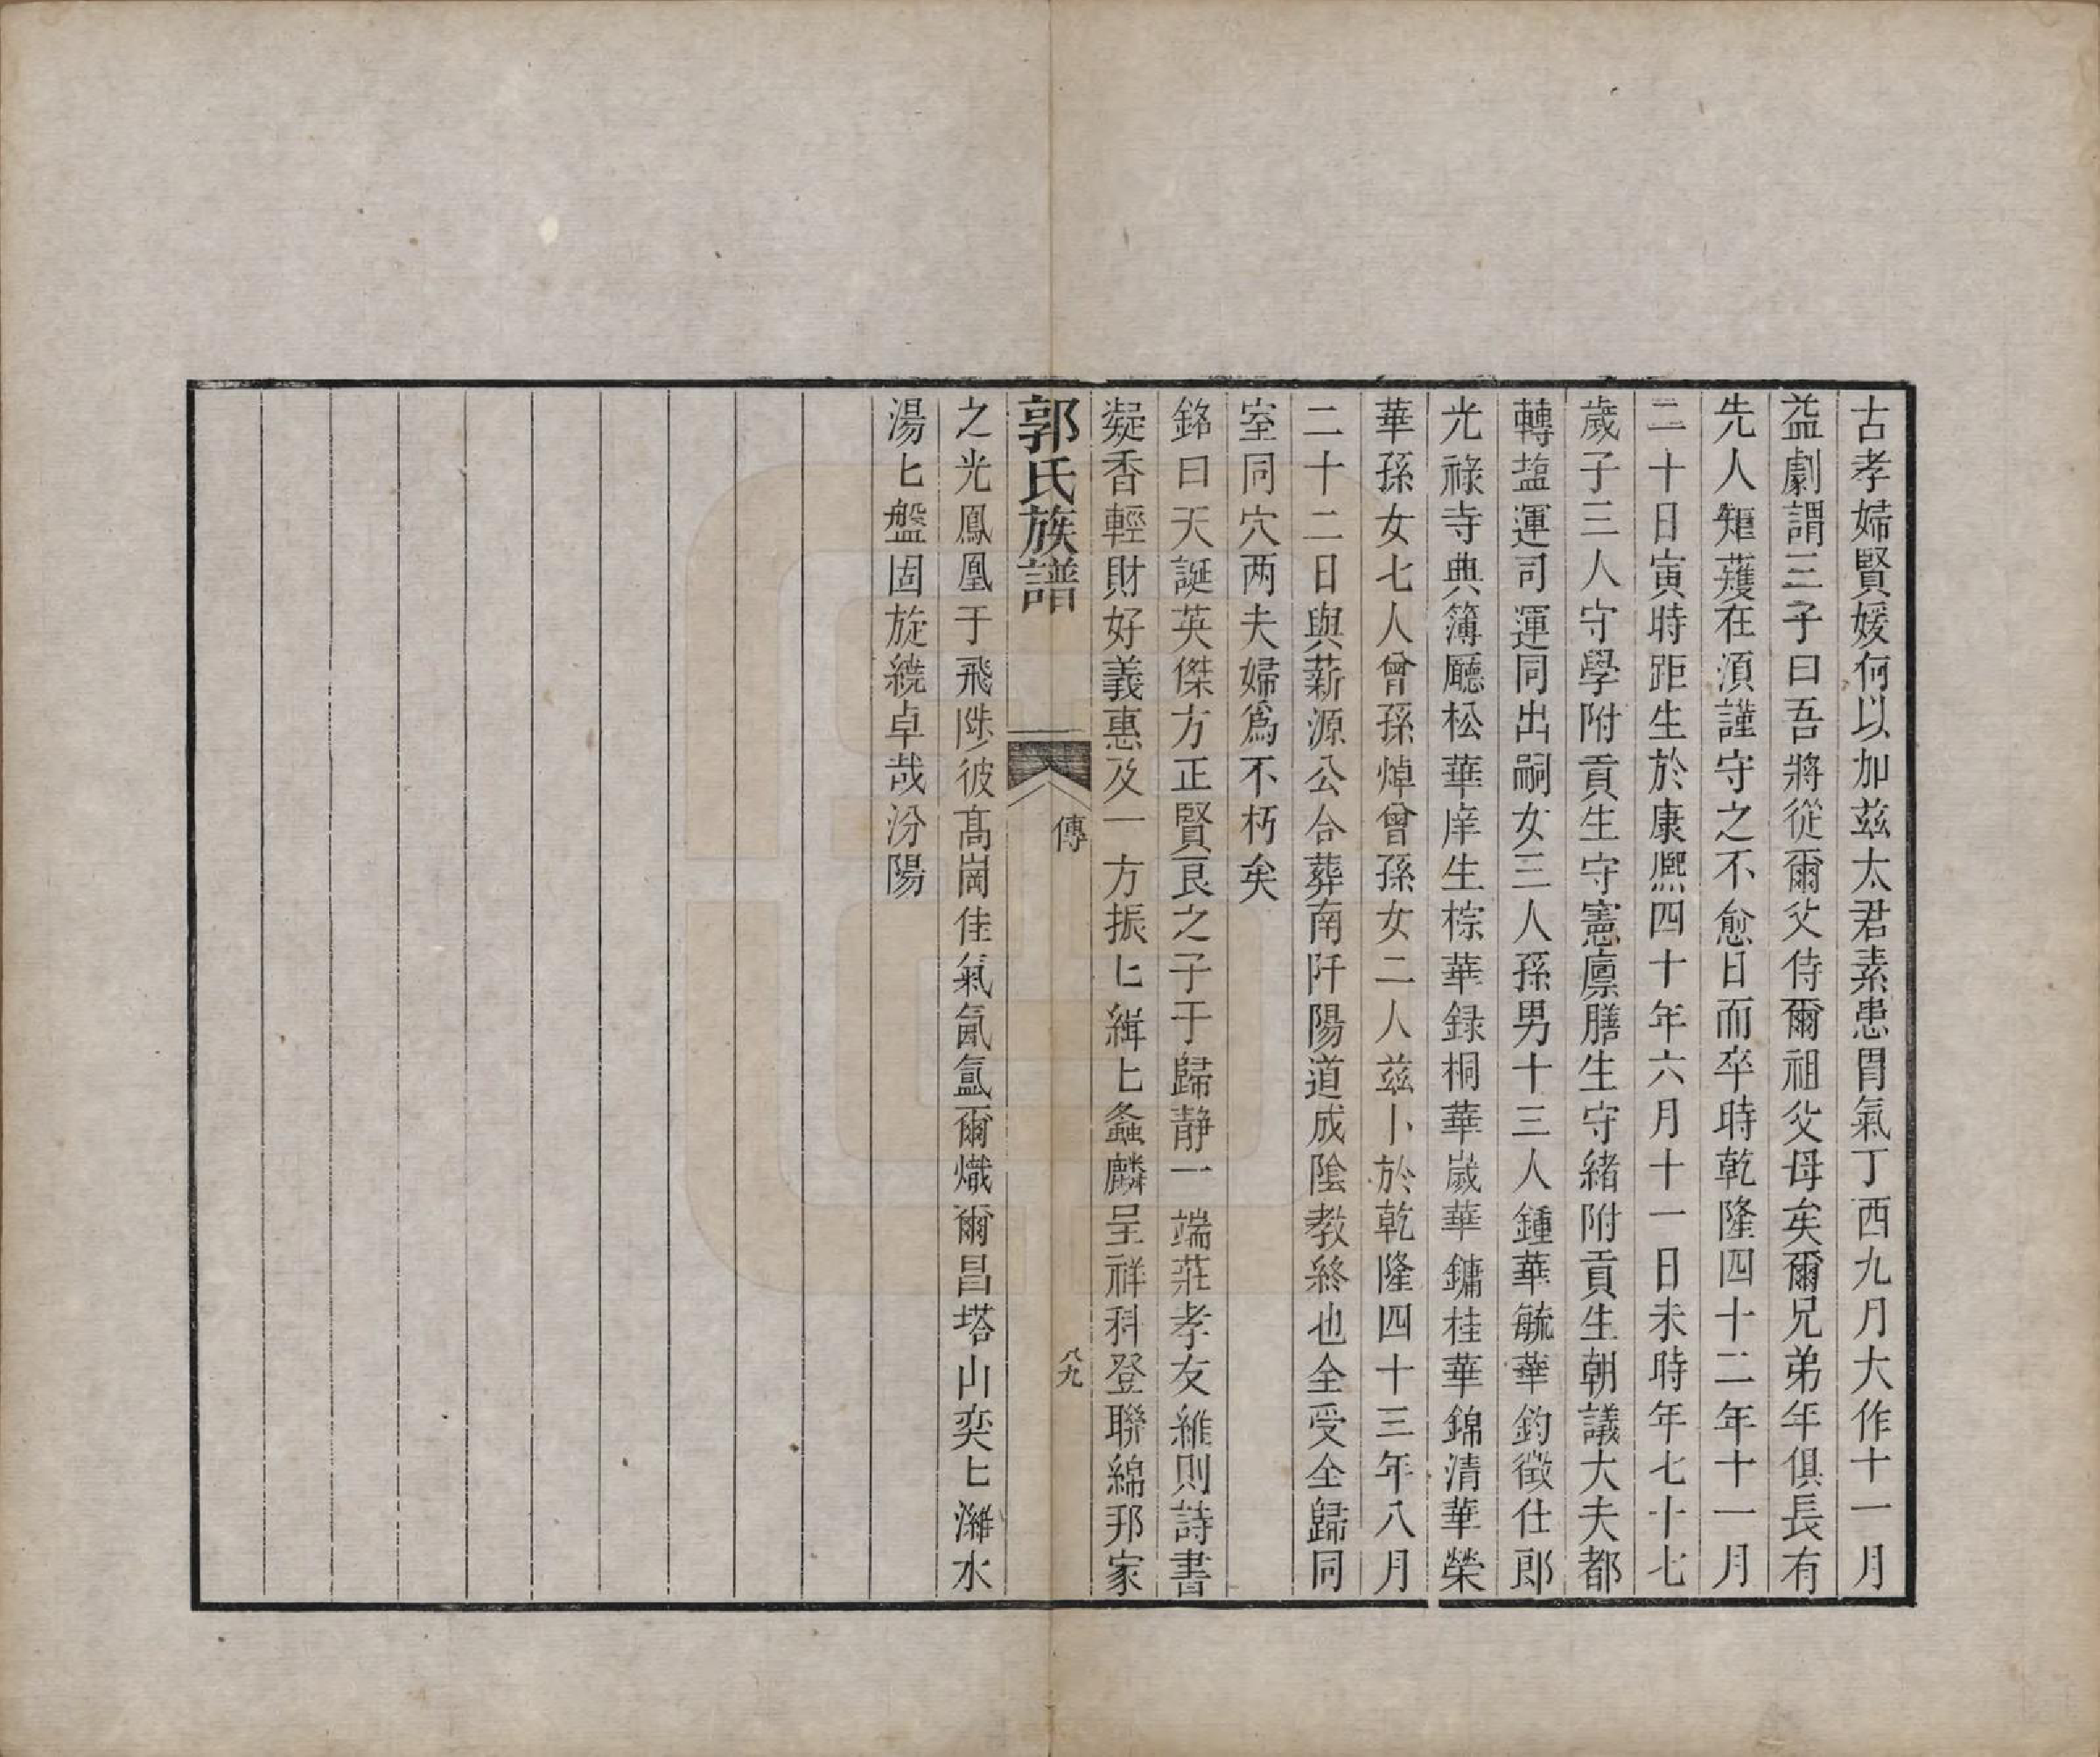 古孝婦賢媛何以加兹太君素患胃氣丁酉九月大作十一月
益劇謂三子曰吾將從爾父侍爾祖父母矣爾兄弟年俱長有
先人矩蒦在湏謹守之不愈日而卒時乾隆四十二年十一月
二十日寅時距生於康熈四十年六月十一日未時年七十七
歲子三人守學附貢生守憲廪膳生守緒附貢生朝議大夫都
轉塩運司運同出嗣女三人孫男十三人鍾華毓華鈞徵仕郎
光祿寺典簿廳松華庠生棕華録桐華嵗華鏞桂華錦清華榮
華孫女七人曾孫焯曾孫女二人兹卜於乾隆四十三年八月
二十二日與薪源公合葬南阡陽道成隂教終也全受全歸同
室同穴两夫婦爲不朽矣
銘曰天誕英傑方正賢良之子于歸静一端莊孝友維則詩書
凝香輕財好義惠及一方振匕緝匕螽麟呈祥科登聯綿邦家
郭氏族譜
傳
八九
之光鳳凰于飛陟彼髙崗佳氣氤氲爾熾爾昌塔山奕匕濰水
湯匕盤固旋繞卓哉汾陽